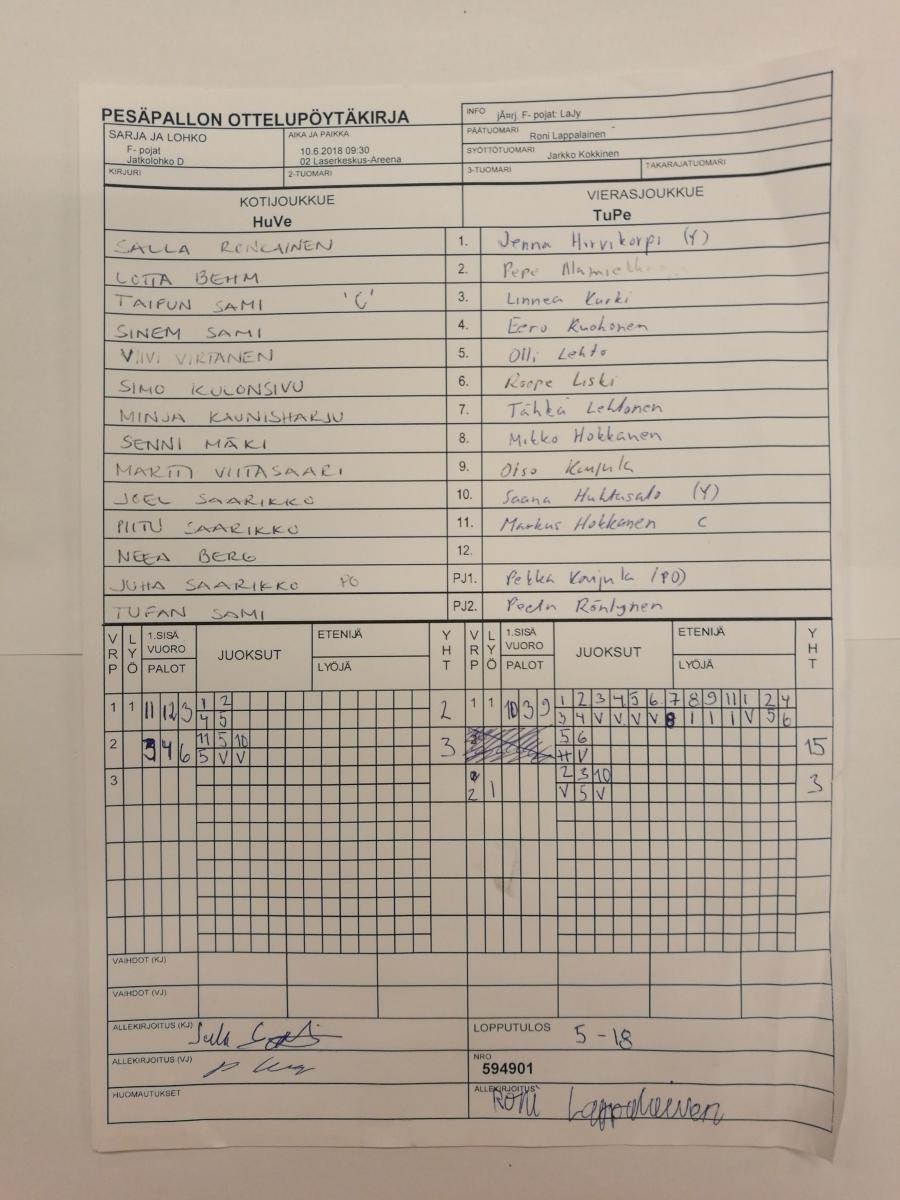 PESÄPALLON OTTELUPÖYTÄKIRJA
INFO jÃ¤rj. F- pojat: LaJy
SARJA JA LOHKO
F- pojat
Jatkolohko D
AIKA JA PAIKKA
10.6.2018 09:30
02 Laserkeskus-Areena
PÄÄTUOMARI Roni Lappalainen
SYÖTTÖTUOMARI Jarkko Kokkinen
KIRJURI 2-TUOMARI 3-TUOMARI TAKARAJATUOMARI
KOTIJOUKKUE VIERASJOUKKUE
HuVe TuPe
SALLA RONKAINEN 1. Jenna Hirvikorpi (Y)
LOTTA BEHM 2. Pepe
TAIFUN SAMI 'C' 3. Linnea Kurki
SINEM SAMI 4. Eero Ruohonen
VIIVI VIRTANEN 5. Olli Lehto
SIMO KULONSIVU 6. Roope Liski
MINJA KAUNISHARJU 7. Tähkä Lehtonen
SENNI MÄKI 8. Mikko Hokkanen
MARTTI VIITASAARI 9. Oiso Konjula
JOEL SAARIKKO 10. Saana Huhtasalo (Y)
PIITU SAARIKKO 11. Markus Hokkanen C
NEEA BERG 12.
JUHA SAARIKKO PO PJ1. Pekka Konjula (PO)
TUFAN SAMI PJ2. Röntynen
VRP LYÖ 1.SISÄ VUORO PALOT JUOKSUT ETENIJÄ LYÖJÄ YHT VRP LYÖ 1.SISÄ VUORO PALOT JUOKSUT ETENIJÄ LYÖJÄ YHT
1 1 11 12 3 1 2 2 1 1 10 3 9 1 2 3 4 5 6 7 8 9 11 1 2 4
4 5 3 4 V V V V 8 1 1 1 V 5 6
2 3 4 6 11 5 10 3 5 6 15
5 V V H V
3 2 3 10 3
2 1 V 5 V
VAIHDOT (KJ)
VAIHDOT (VJ)
ALLEKIRJOITUS (KJ) LOPPUTULOS 5 - 18
ALLEKIRJOITUS (VJ) NRO
594901
HUOMAUTUKSET ALLEKIRJOITUS Roni Lappalainen